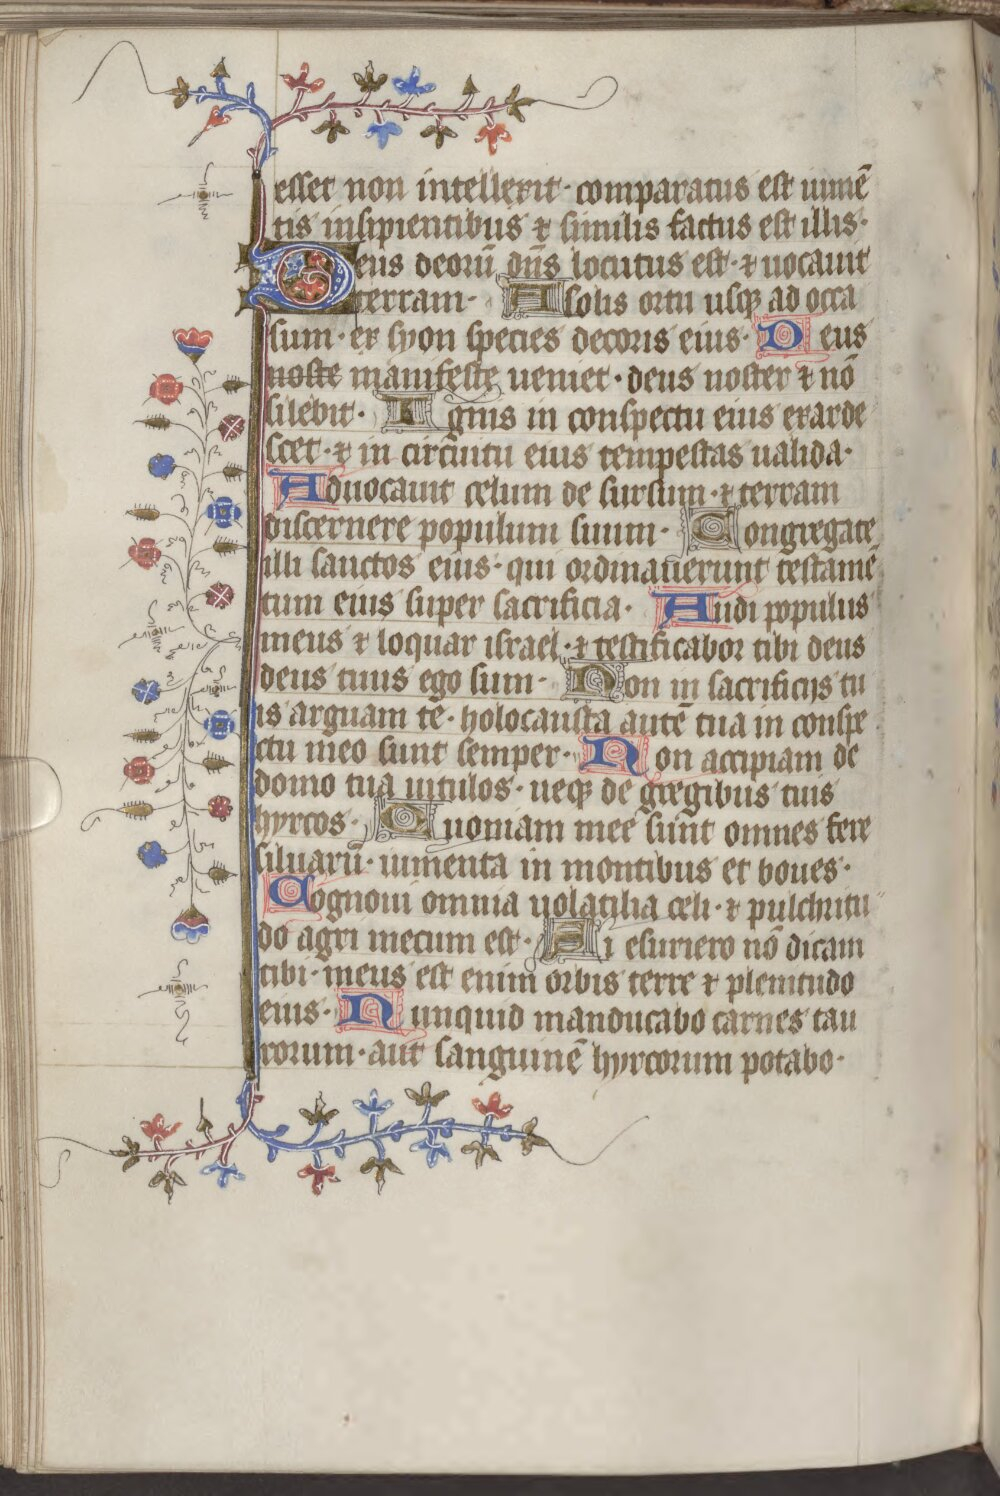 esset non intellexit · comparatus est iumē
tis insipientibus ⁊ similis factus est illis ·
Deus deorū dn̄s locutus est · ⁊ uocauit
terram · A solis ortu usqꝫ ad occa
sum · ex syon species decoris eius · Deus
noste manifeste ueniet · deus noster ⁊ nō
silebit · Ignis in conspectu eius exarde
scet · ⁊ in circuitu eius tempestas ualida ·
Aduocauit celum de sursum · ⁊ terram
discernere populum suum · Congregate
illi sanctos eius · qui ordinauerunt testamē
tum eius super sacrificia · Audi populus
meus ⁊ loquar israel · ⁊ testificabor tibi deus
deus tuus ego sum · Non in sacrificijs tu
is arguam te · holocausta autē tua in conspe
ctu meo sunt semper · Non accipiam de
domo tua uitulos · neqꝫ de gregibus tuis
hyrcos · Quoniam mee sunt omnes fere
siluarū · iumenta in montibus et boues ·
Cognoui omnia uolatilia celi · ⁊ pulchritu
do agri mecum est · Si esuriero nō dicam
tibi · meus est enim orbis terre ⁊ plenitudo
eius · Nunquid manducabo carnes tau
rorum · aut sanguinē hyrcorum potabo ·